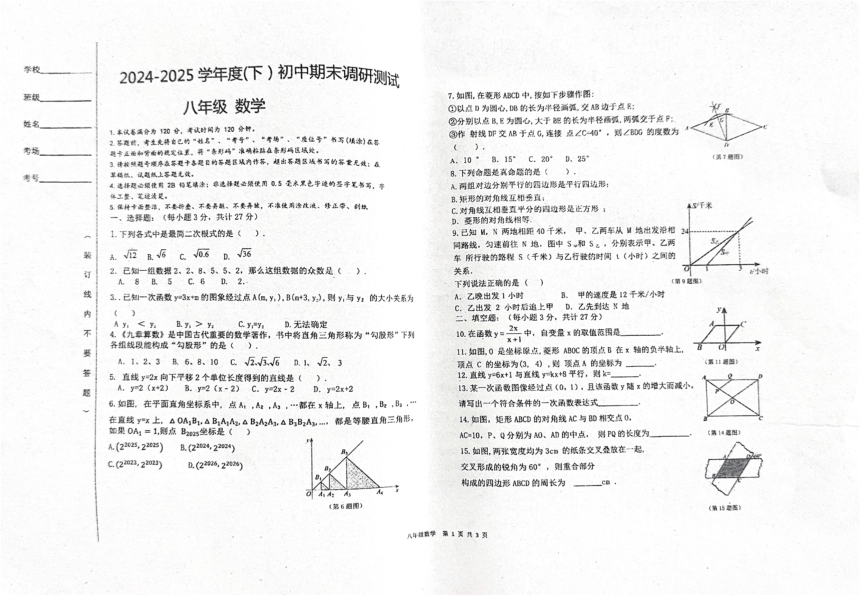 学校
班级
姓名
考场
考号
装
订
线
内
不
要
答
题
2024-2025 学年度(下）初中期末调研测试
八年级 数学
1.本试卷满分为 120 分，考试时间为 120 分钟。
2.答题前，考生先将自己的“姓名”、“考号”、“考场”、“座位号”书写(填涂)在答
题卡正面和背面的规定位置，将“条形码”准确粘贴在条形码区域处。
3.请按照题号顺序在答题卡各题目的答题区域内作答，超出答题区域书写的答案无效；在
草稿纸、试题纸上答题无效。
4.选择题必须使用 2B 铅笔填涂；非选择题必须使用 0.5 毫米黑色字迹的签字笔书写，字
体工整、笔迹清楚。
5.保持卡面整洁，不要折叠、不要弄破、不要弄皱，不准使用涂改液、修正带、刮纸
一、选择题：（每小题 3 分，共计 27 分）
1.下列各式中是最简二次根式的是（    ）.
A. √12  B. √6  C. √0.6  D. √36
2. 已知一组数据 2、2、8、5、5、2，那么这组数据的众数是（    ）.
A. 8  B. 5  C. 6  D. 2.
3..已知一次函数 y=3x+m 的图象经过点 A(m, y₁), B(m+3, y₂), 则 y₁ 与 y₂ 的大小关系为
（    ）
A y₁ < y₂  B. y₁ > y₂  C. y₁=y₂  D. 无法确定
4.《九章算术》是中国古代重要的数学著作，书中将直角三角形称为“勾股形”下列
各组线段能构成“勾股形”的是（    ）.
A. 1、2、3  B. 6、8、10  C. √2、√3、√6  D. 1、√2、3
5. 直线 y=2x 向下平移 2 个单位长度得到的直线是（    ）.
A. y=2 (x+2)  B. y=2 (x﹣2)  C. y=2x﹣2  D. y=2x+2
6.如图，在平面直角坐标系中，点 A₁ , A₂ , A₃ , ⋯都在 x 轴上，点 B₁ , B₂ , B₃ , ⋯
在直线 y=x 上，△ OA₁B₁, △ B₁A₁A₂, △ B₂A₂A₃, △ B₃B₂A₃, ..., 都是等腰直角三角形，
如果 OA₁ = 1,则点 B₂₀₂₅坐标是（    ）
A. (2²⁰²⁵, 2²⁰²⁵)  B. (2²⁰²⁴, 2²⁰²⁴)
C. (2²⁰²³, 2²⁰²³)  D. (2²⁰²⁶, 2²⁰²⁶)
y
B₃
B₂
B₁
O A₁ A₂ A₃ A₄ x
(第 6 题图)
7.如图,在菱形 ABCD 中,按如下步骤作图:
①以点 D 为圆心,DB 的长为半径画弧,交 AB 边于点 E;
②分别以点 B,E 为圆心,大于 BE 的长为半径画弧,两弧交于点 F;
③作 射线 DF 交 AB 于点 G,连接 点∠C=40°，则∠BDG 的度数为
（    ）.
A、10 °  B. 15°  C. 20°  D. 25°
(第 7 题图)
8.下列命题是真命题的是（    ）.
A.两组对边分别平行的四边形是平行四边形;
B.矩形的对角线互相垂直;
C.对角线互相垂直平分的四边形是正方形 ;
D. 菱形的对角线相等.
9.已知 M，N 两地相距 40 千米， 甲、乙两车从 M 地出发沿相
同路线，匀速前往 N 地，图中 S甲和 S乙 ，分别表示甲、乙两
车 所行驶的路程 S（千米）与乙行驶的时间 t（小时）之间的
关系.
下列说法正确的是（    ）
A. 乙晚出发 1 小时  B. 甲的速度是 12 千米/小时
C. 乙出发 2 小时后追上甲  D. 乙先到达 N 地
S/千米
24
S乙
S甲
O 1 3 t/小时
(第 9 题图)
二、填空题：（每小题 3 分，共计 27 分）
10.在函数 y= 2x/(x+1) 中，自变量 x 的取值范围是________.
11.如图,O 是坐标原点,菱形 ABOC 的顶点 B 在 x 轴的负半轴上,
顶点 C 的坐标为(3, 4) , 则 顶点 A 的坐标为 ________.
(第 11 题图)
12.直线 y=6x+1 与直线 y=kx+8 平行，则 k=________.
13.某一次函数图像经过点(0, 1), 且该函数 y 随 x 的增大而减小,
请写出一个符合条件的一次函数表达式________.
14.如图，矩形 ABCD 的对角线 AC 与 BD 相交点 O,
AC=10, P、Q 分别为 AO、AD 的中点， 则 PQ 的长度为________.
(第 14 题图)
15.如图,两张宽度均为 3cm 的纸条交叉叠放在一起,
交叉形成的锐角为 60° ，则重合部分
构成的四边形 ABCD 的周长为 ______cm .
(第 15 题图)
八年级数学 第 1 页 共 3 页